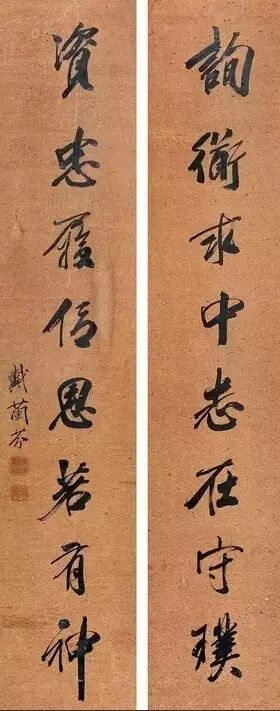 詢求中志在守璞
資忠履信思若有神
戴蘭芬